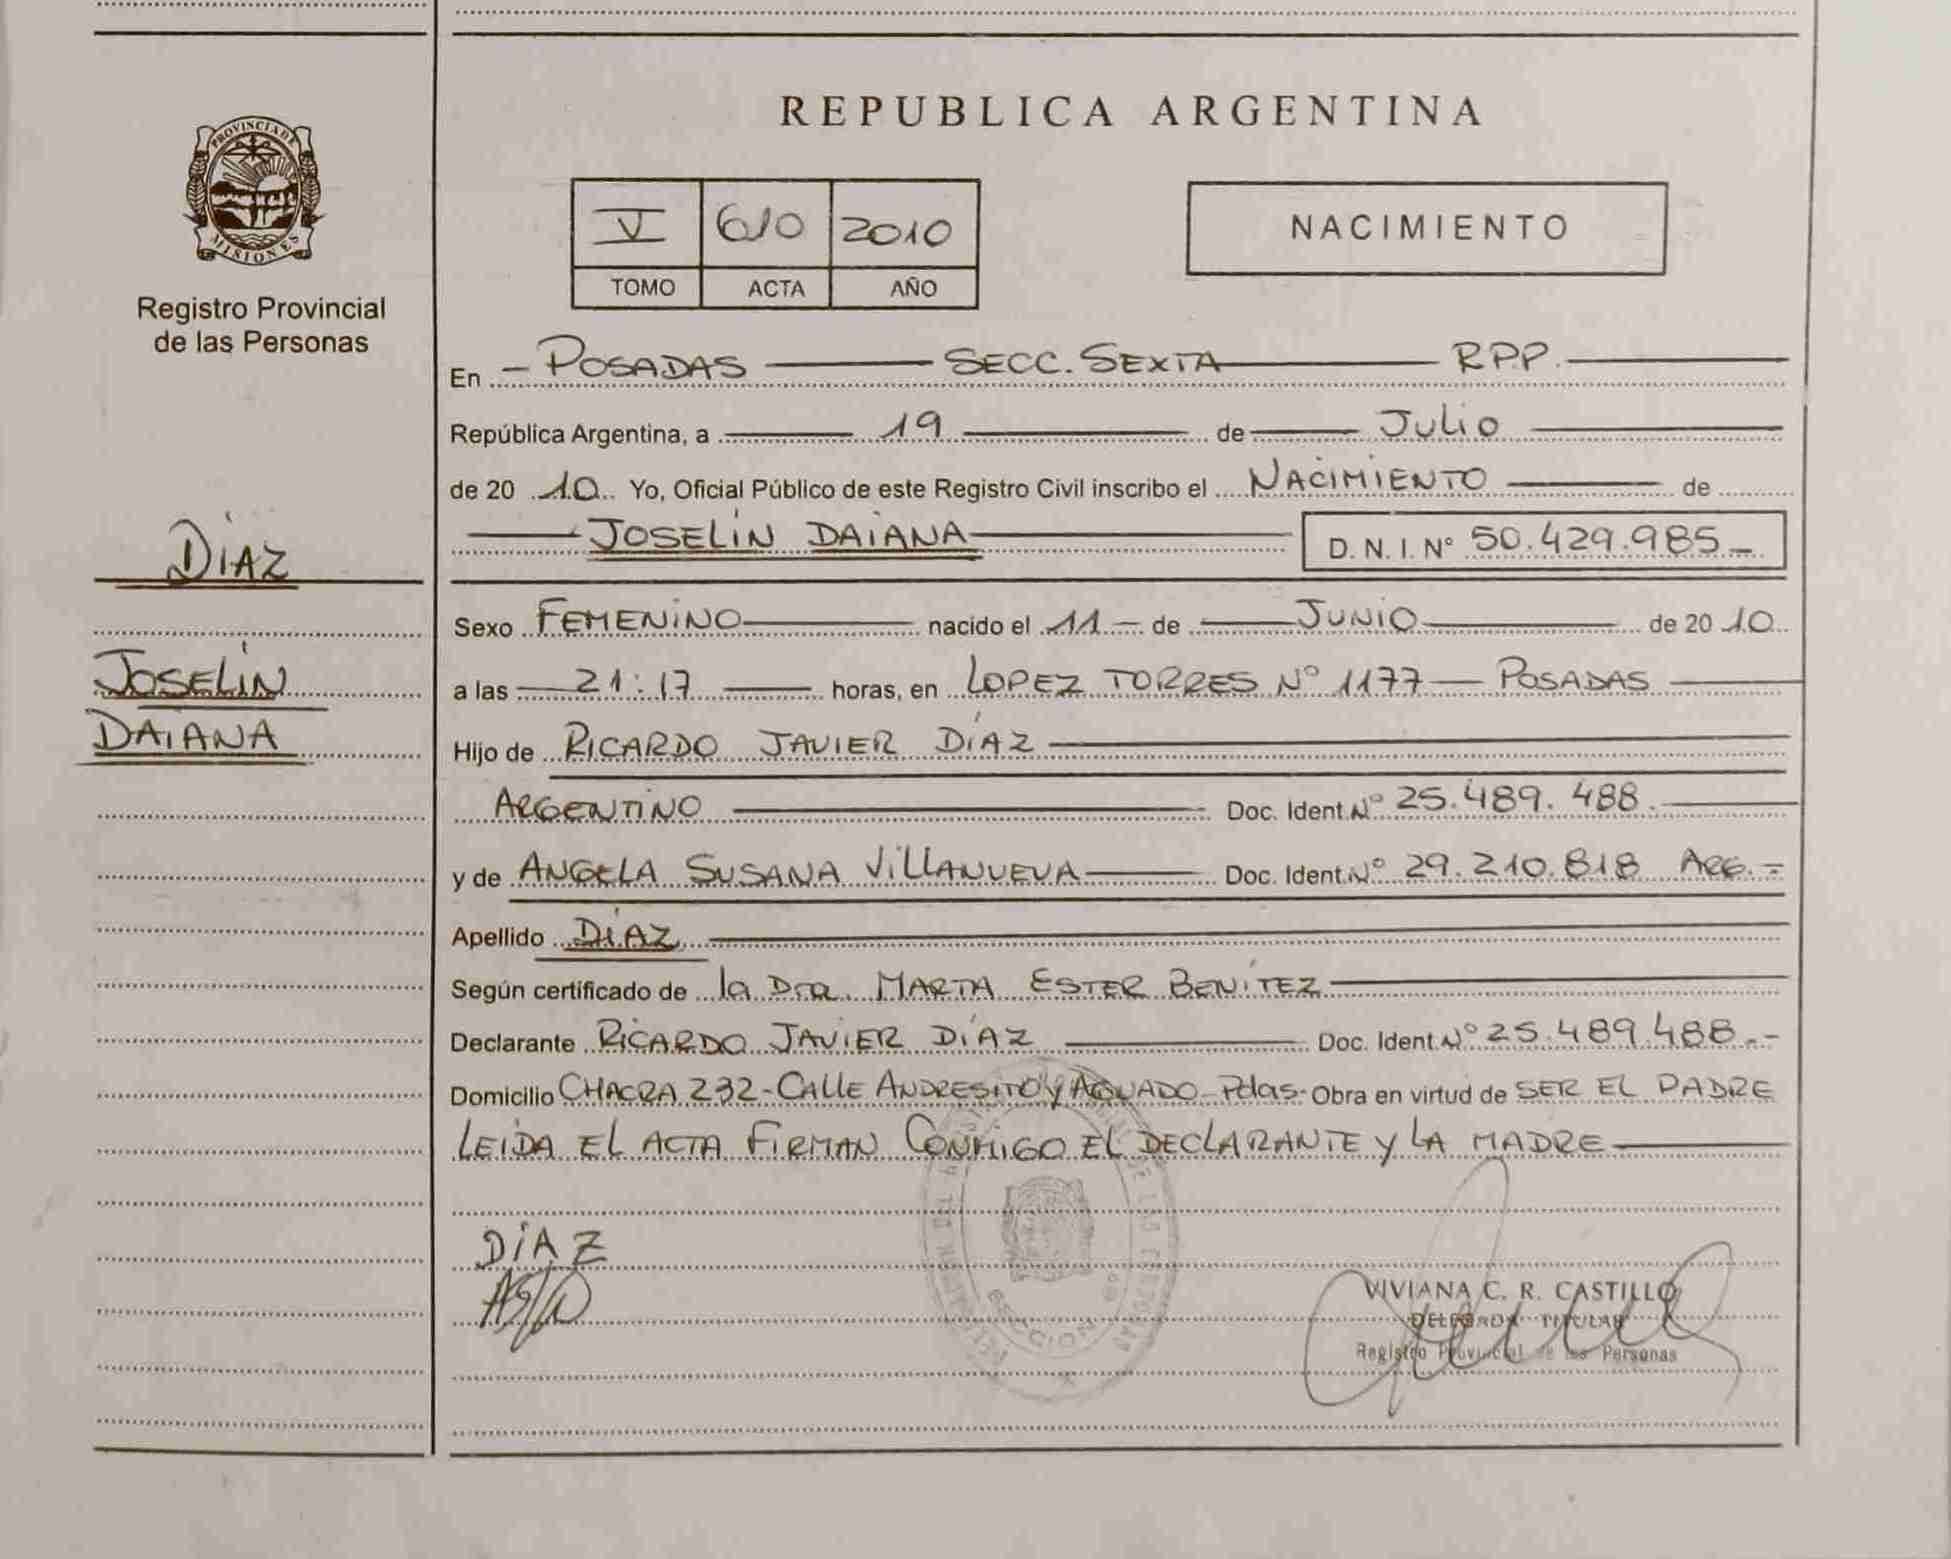 PROVINCIA DE
MISIONES
Registro Provincial
de las Personas
DÍAZ
JOSELÍN
DAIANA
REPUBLICA ARGENTINA
V 610 2010
TOMO ACTA AÑO
NACIMIENTO
En - POSADAS SECC. SEXTA R.P.P.
República Argentina, a 19 de Julio
de 20 10 Yo, Oficial Público de este Registro Civil inscribo el NACIMIENTO de
JOSELÍN DAIANA D. N. I. N° 50.429.985.-
Sexo FEMENINO nacido el 11 - de JUNIO de 20 10
a las 21:17 horas, en LOPEZ TORRES N° 1177 - POSADAS
Hijo de RICARDO JAVIER DÍAZ
ARGENTINO Doc. Ident. N° 25.489.488.
y de ANGELA SUSANA VILLANUEVA Doc. Ident. N° 29.210.818 ARG.-
Apellido DÍAZ
Según certificado de la Dra. MARTA ESTER BENÍTEZ
Declarante RICARDO JAVIER DÍAZ Doc. Ident. N° 25.489.488.-
Domicilio CHACRA 232-CALLE ANDRESITO y AGUADO-Pdas- Obra en virtud de SER EL PADRE
LEIDA EL ACTA FIRMAN CONMIGO EL DECLARANTE y LA MADRE
DÍAZ
VIVIANA C. R. CASTILLO
DELEGADA TITULAR
Registro Provincial de las Personas